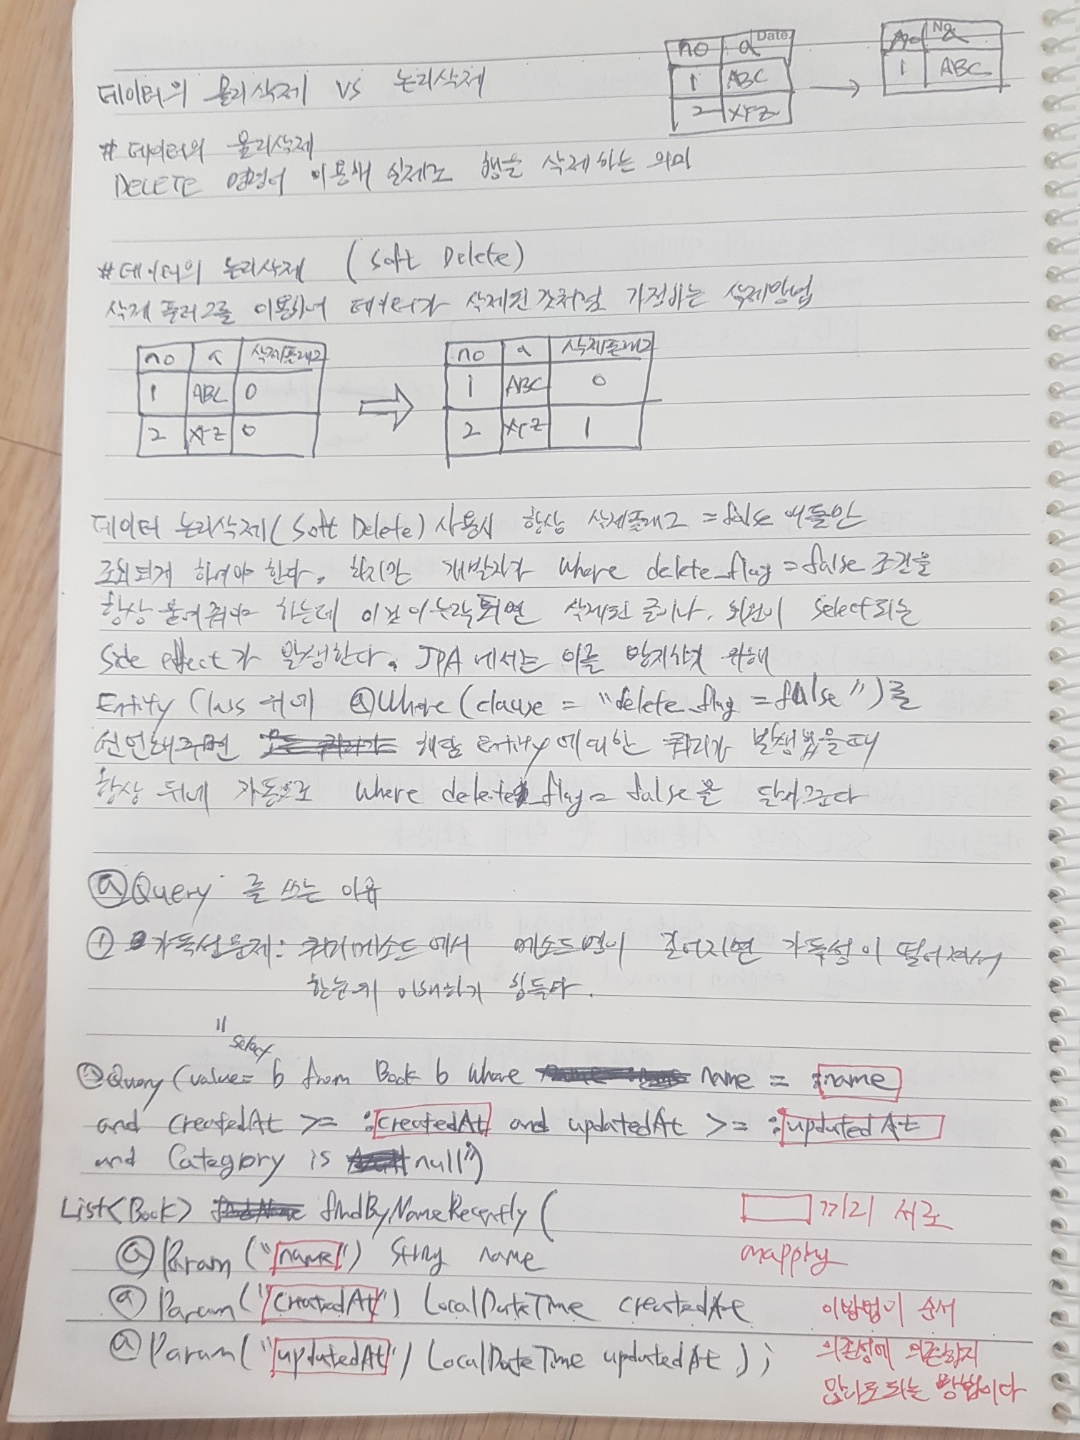 Date
No.
no a
1 ABC
2 XYZ
→
no a
1 ABC
데이터의 물리삭제 vs 논리삭제
# 데이터의 물리삭제
DELETE 명령어 이용해 실제로 행을 삭제하는 의미
# 데이터의 논리삭제 (Soft Delete)
삭제 플래그를 이용하여 데이터가 삭제된 것처럼 가정하는 삭제방법
no a 삭제플래그
1 ABC 0
2 XYZ 0
no a 삭제플래그
1 ABC 0
2 XYZ 1
데이터 논리삭제(Soft Delete) 사용시 항상 삭제플래그 = false 애들만
조회되게 하여야 한다. 하지만 개발자가 where delete_flag = false 조건을
항상 붙여줘야 하는데 이것이 누락되면 삭제된 글이나, 회원이 select되는
Side effect가 발생한다. JPA에서는 이를 방지하기 위해
Entity Class 위에 @Where(clause = "delete_flag = false")를
선언해주면 해당 entity에 대한 쿼리가 발생했을때
항상 뒤에 자동으로 where delete_flag = false을 달아준다
@Query 를 쓰는 이유
① 가독성문제: 쿼리메소드에서 메소드명이 길어지면 가독성이 떨어져서
한눈에 이해하기 힘들다.
"select
@Query(value= b from Book b where name = :name
and createdAt >= :createdAt and updatedAt >= :updatedAt
and Category is null")
List<Book> findByNameRecently(
@Param("name") String name
@Param("createdAt") LocalDateTime createdAt
@Param("updatedAt") LocalDateTime updatedAt);
끼리 서로
mapping
이방법이 순서
의존성에 의존하지
않아도되는 방법이다